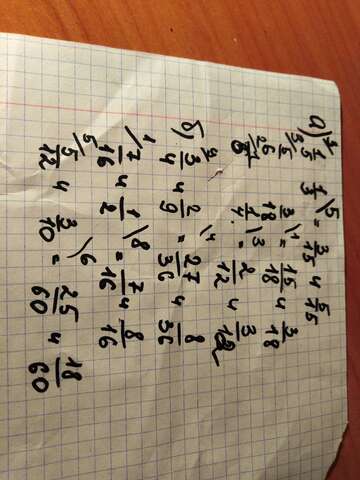 а) 3\ 1/5 1/3 \5 = 3/15 и 5/15
3\ 5/6 3/18 \1 = 15/18 и 3/18
1/4 \3 = 2/12 и 3/12
б) 9\ 3/4 и 2/9 \4 = 27/36 и 8/36
1\ 7/16 и 1/2 \8 = 7/16 и 8/16
5\ 5/12 и 3/10 \6 = 25/60 и 18/60